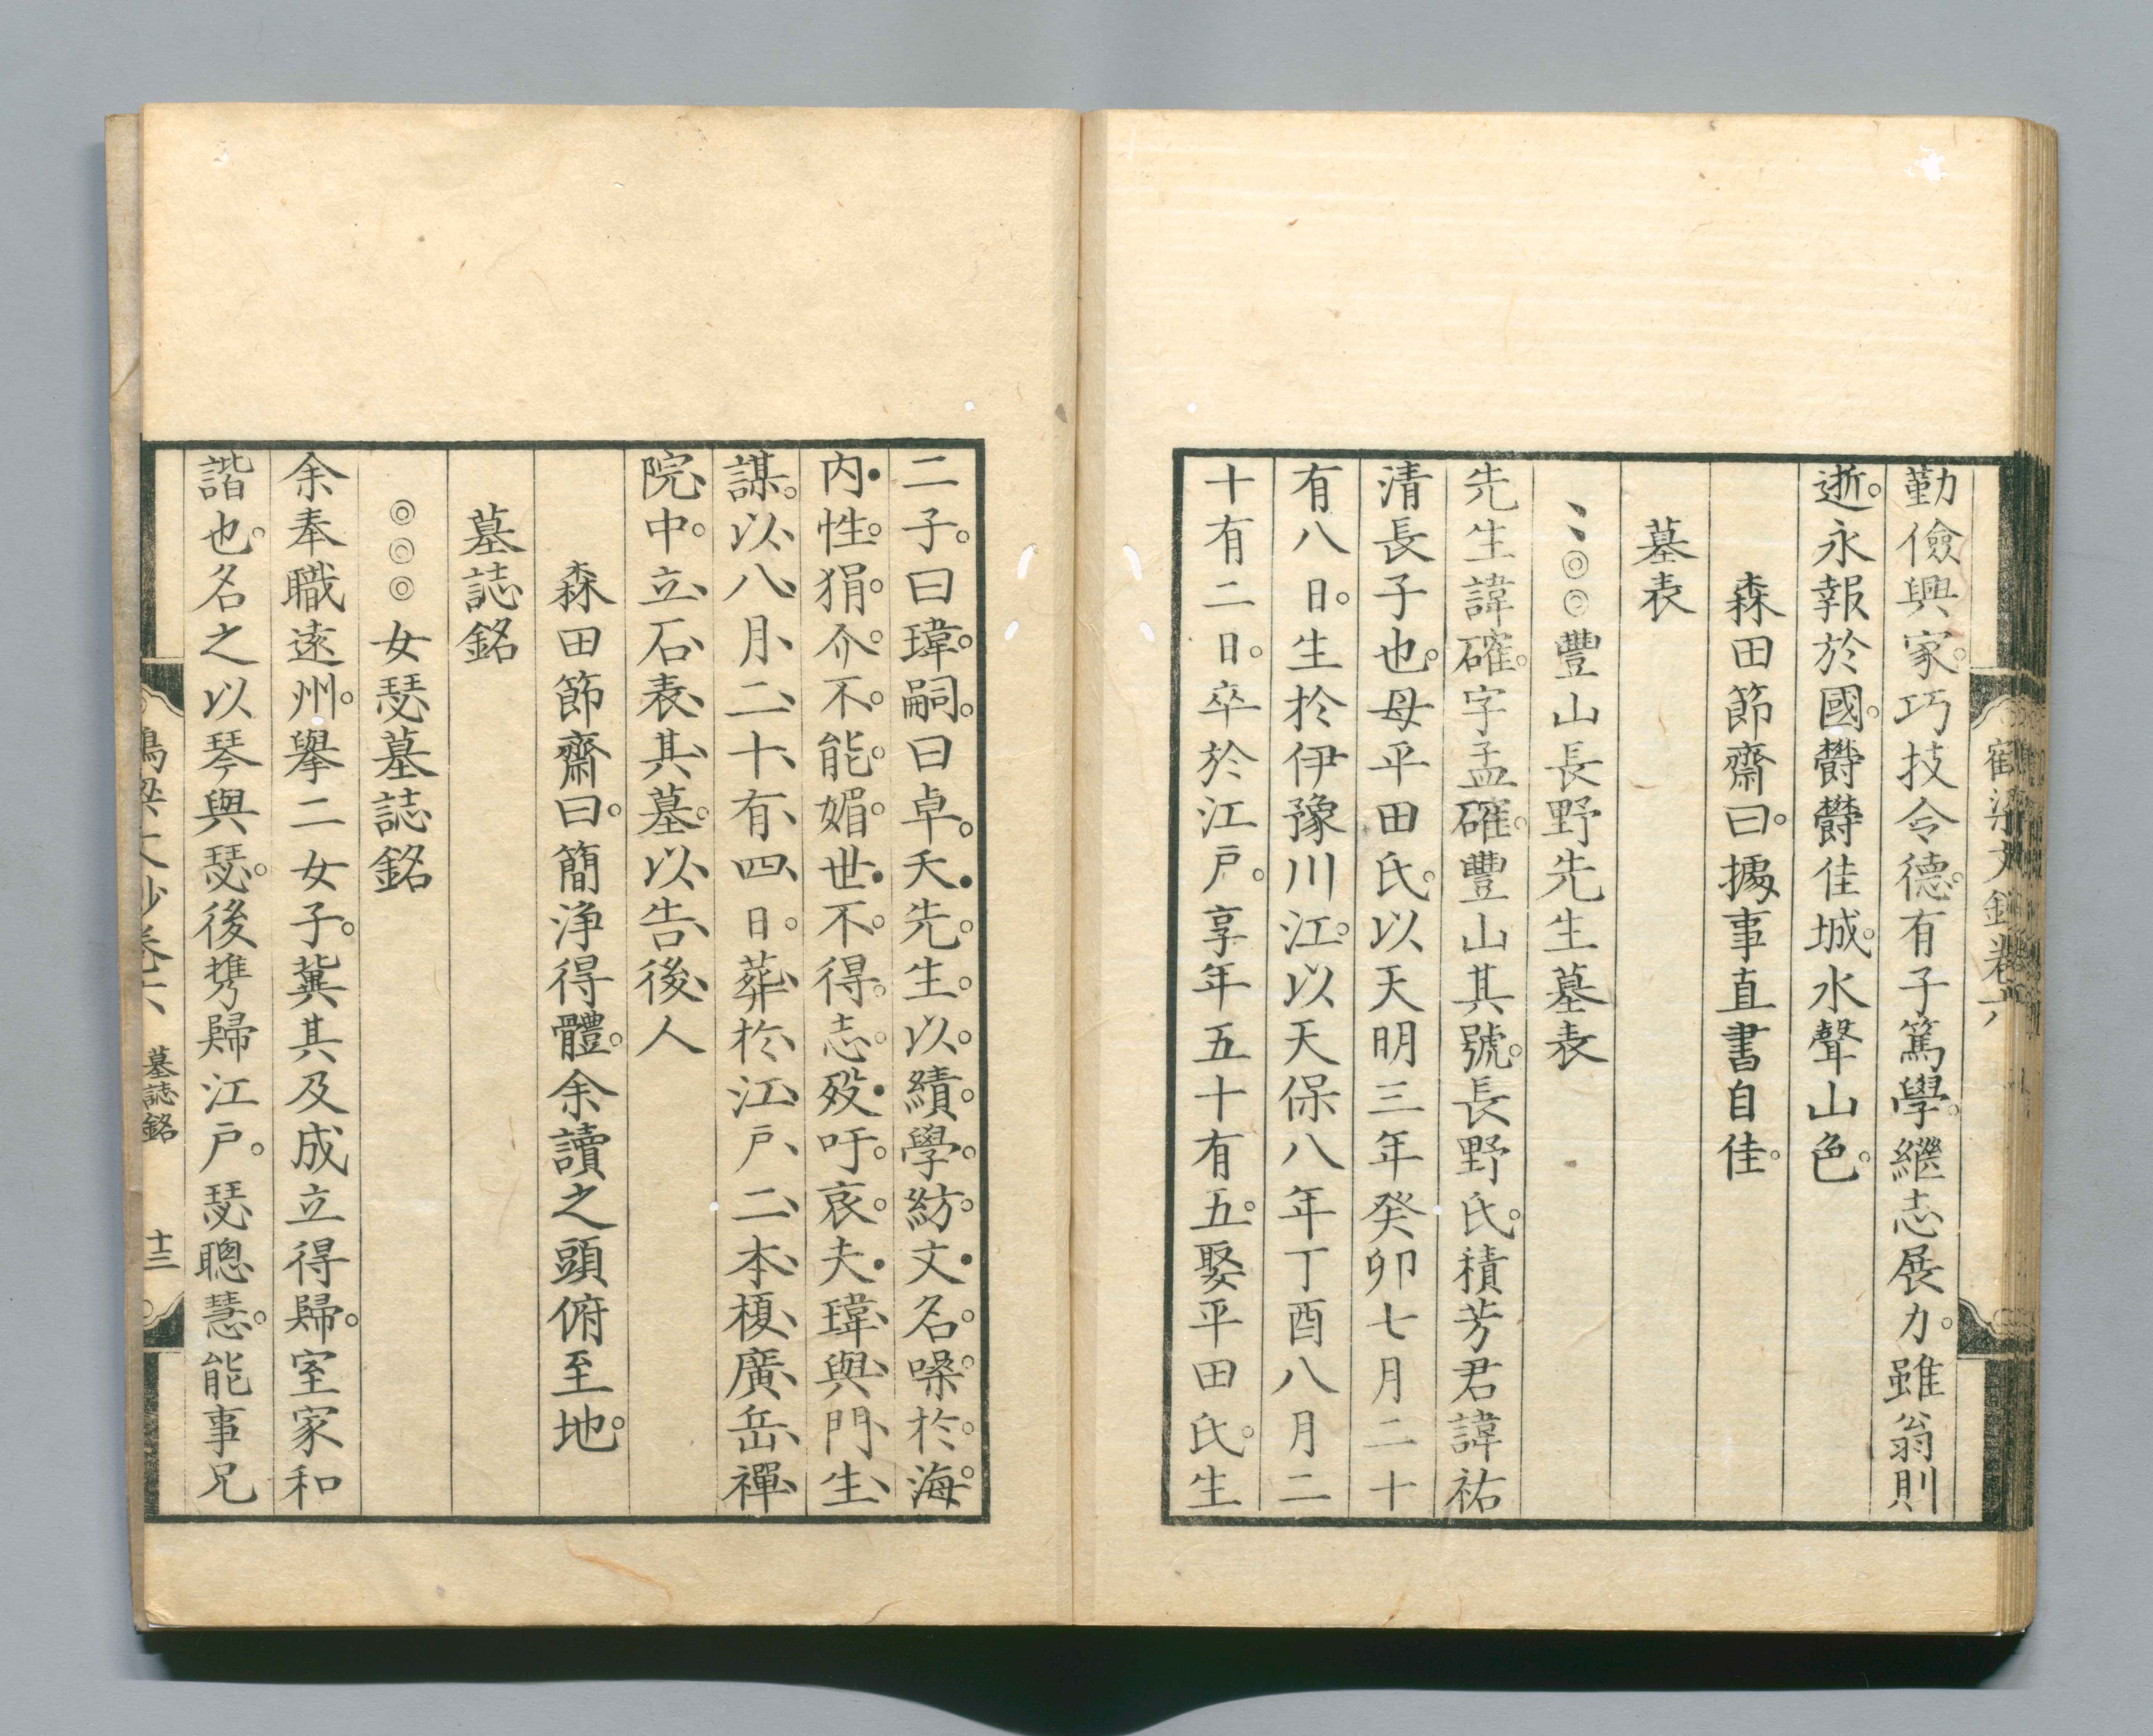 勤儉興家。巧技令德。有子篤學。繼志展力。雖翁則
逝。永報於國。欝欝佳城。水聲山色。
森田節齋曰。據事直書自佳。
墓表
豐山長野先生墓表
先生諱確。字孟確。豐山其號。長野氏。積芳君諱祐
清長子也。母平田氏。以天明三年癸卯七月二十
有八日。生於伊豫川江。以天保八年丁酉八月二
十有二日。卒於江戶。享年五十有五。娶平田氏。生
二子。曰瑋。嗣。曰卓。夭。先生以績學紡文。名噪於海
內。性狷介。不能媚世。不得志歿。吁哀夫。瑋與門生
謀。以八月二十有四日。葬於江戶二本榎廣岳禪
院中。立石表其墓。以告後人
森田節齋曰。簡淨得體。余讀之頭俯至地。
墓誌銘
◎◎◎女瑟墓誌銘
余奉職遠州。擧二女子。冀其及成立得歸。室家和
諧也。名之以琴與瑟。後携歸江戶。瑟聰慧。能事兄
墓誌銘
十三